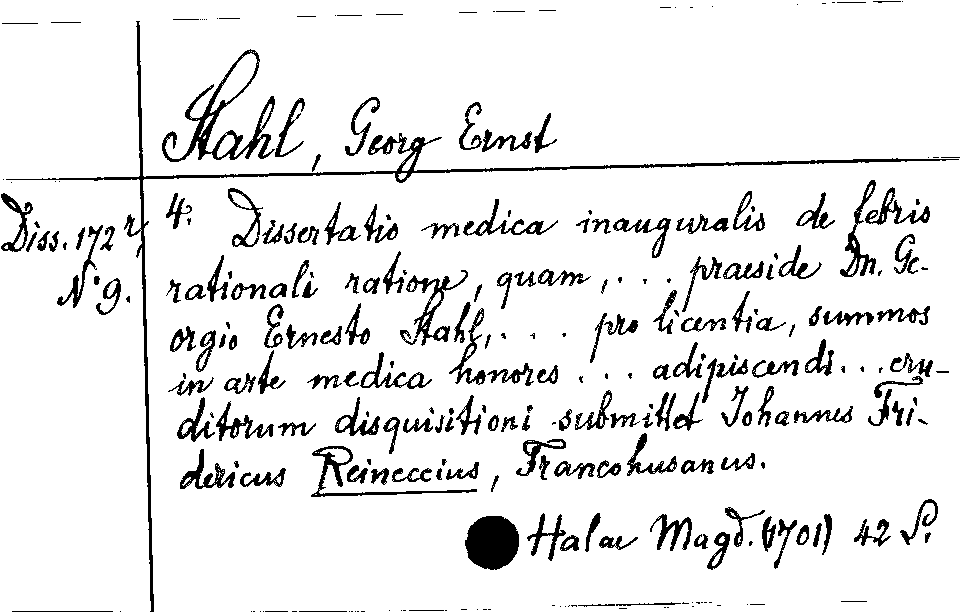 Stahl, Georg Ernst
Diss. 172 r,
No 9.
4. Dissertatio medica inauguralis de febris
rationali ratione, quam, . . . praeside Dn. Ge-
orgio Ernesto Stahl, . . . pro licentia, summos
in arte medica honores . . . adipiscendi . . . eru-
ditorum disquisitioni submittet Johannes Fri-
dericus Reineccius, Francohusanus.
Halae Magd. (1701) 42 S.